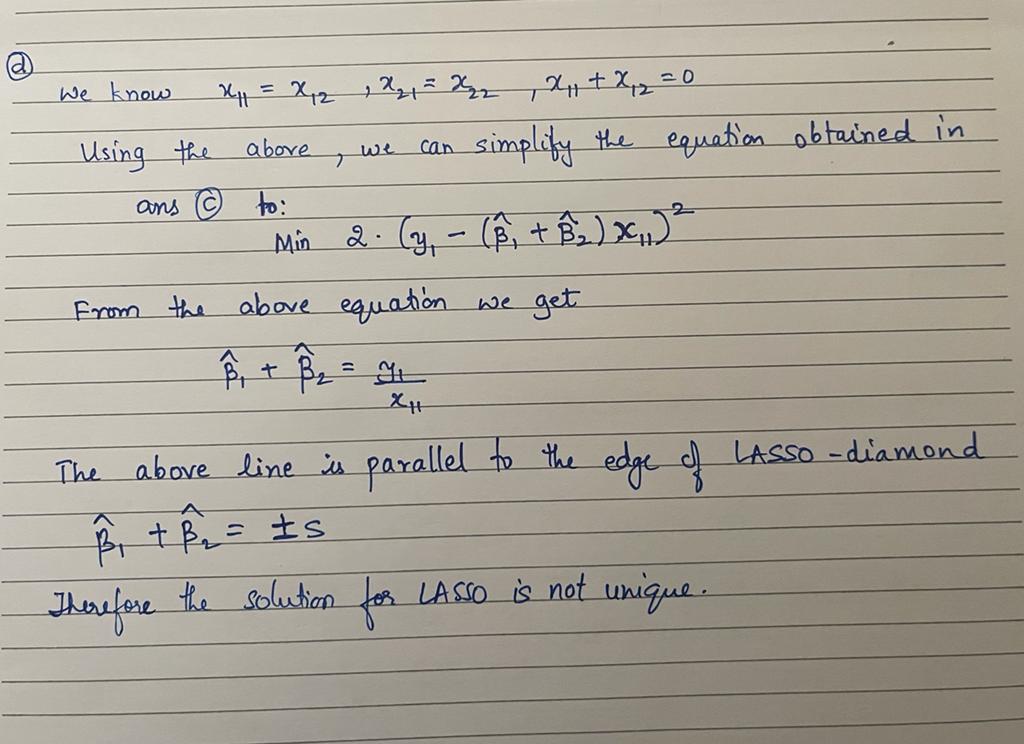 ⓓ
We know x₁₁ = x₁₂ , x₂₁ = x₂₂ , x₁₁ + x₁₂ = 0
Using the above , we can simplify the equation obtained in
ans ⓒ to:
Min 2 · (y₁ − (β̂₁ + β̂₂) x₁₁)²
From the above equation we get
β̂₁ + β̂₂ = y₁/x₁₁
The above line is parallel to the edge of LASSO-diamond
β̂₁ + β̂₂ = ±s
Therefore the solution for LASSO is not unique.